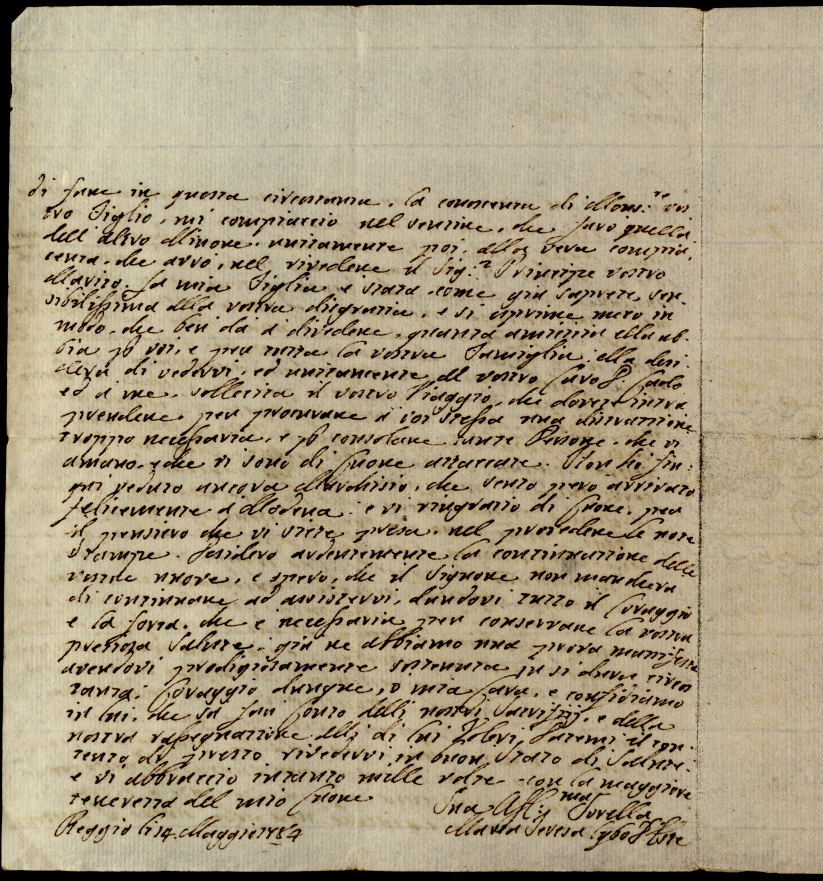 di fare in questa circostanza. La conoscenza di Mons.re vos
tro Figlio, mi compiaccio nel sentire, che farò quella
dell'altro Minore, unitamente poi, alla vera compia,
cenza, che avrò, nel rivedere il Sig.r Principe vostro
Marito. La mia Figlia è stata come già saprete sen
sibilissima alla vostra disgrazia, e si esprime meco in
modo, che ben da a divedere, quanta amicizia ella ab-
bia p voi, e per tutta la vostra Famiglia, ella desi
dera di vedervi, ed unitamente al vostro Caro P. Paolo
ed a me, sollecita il vostro Viaggio, che dovete intra
prendere, per procurare a voi stessa una distrazione
troppo necessaria, e p consolare tante Persone, che vi
amano, e che vi sono di Cuore attaccate. Non ho fin:
qui veduto ancora Marchisio, che sento però arrivato
felicemente a Modena: e vi ringrazio di Cuore, per
il pensiero che vi siete presa, nel provedere le note
Stampe. Desidero ardentemente la continuazione delle
vostre nuove, e spero, che il Signore non mancherà
di continuare ad assistervi, dandovi tutto il Coraggio
e la forza, che è necessaria per conservare la vostra
preziosa Salute: già ne abbiamo una prova manifesta
avendovi prodigiosamente sostenuta in sì dura circos
tanza: Coraggio dunque, o mia Cara, e confidiamo
in lui, che sa far Conto delli nostri Sacrifizj, e della
nostra rassegnazione alli di lui Voleri. Datemi il con-
tento di presto rivedervi in buon Stato di Salute:
e vi abbraccio intanto mille volte con la maggiore
tenerezza del mio Cuore
Sua Aff.ma Sorella
Maria Teresa Cybo d'Este
Reggio li 14 Maggio 1784